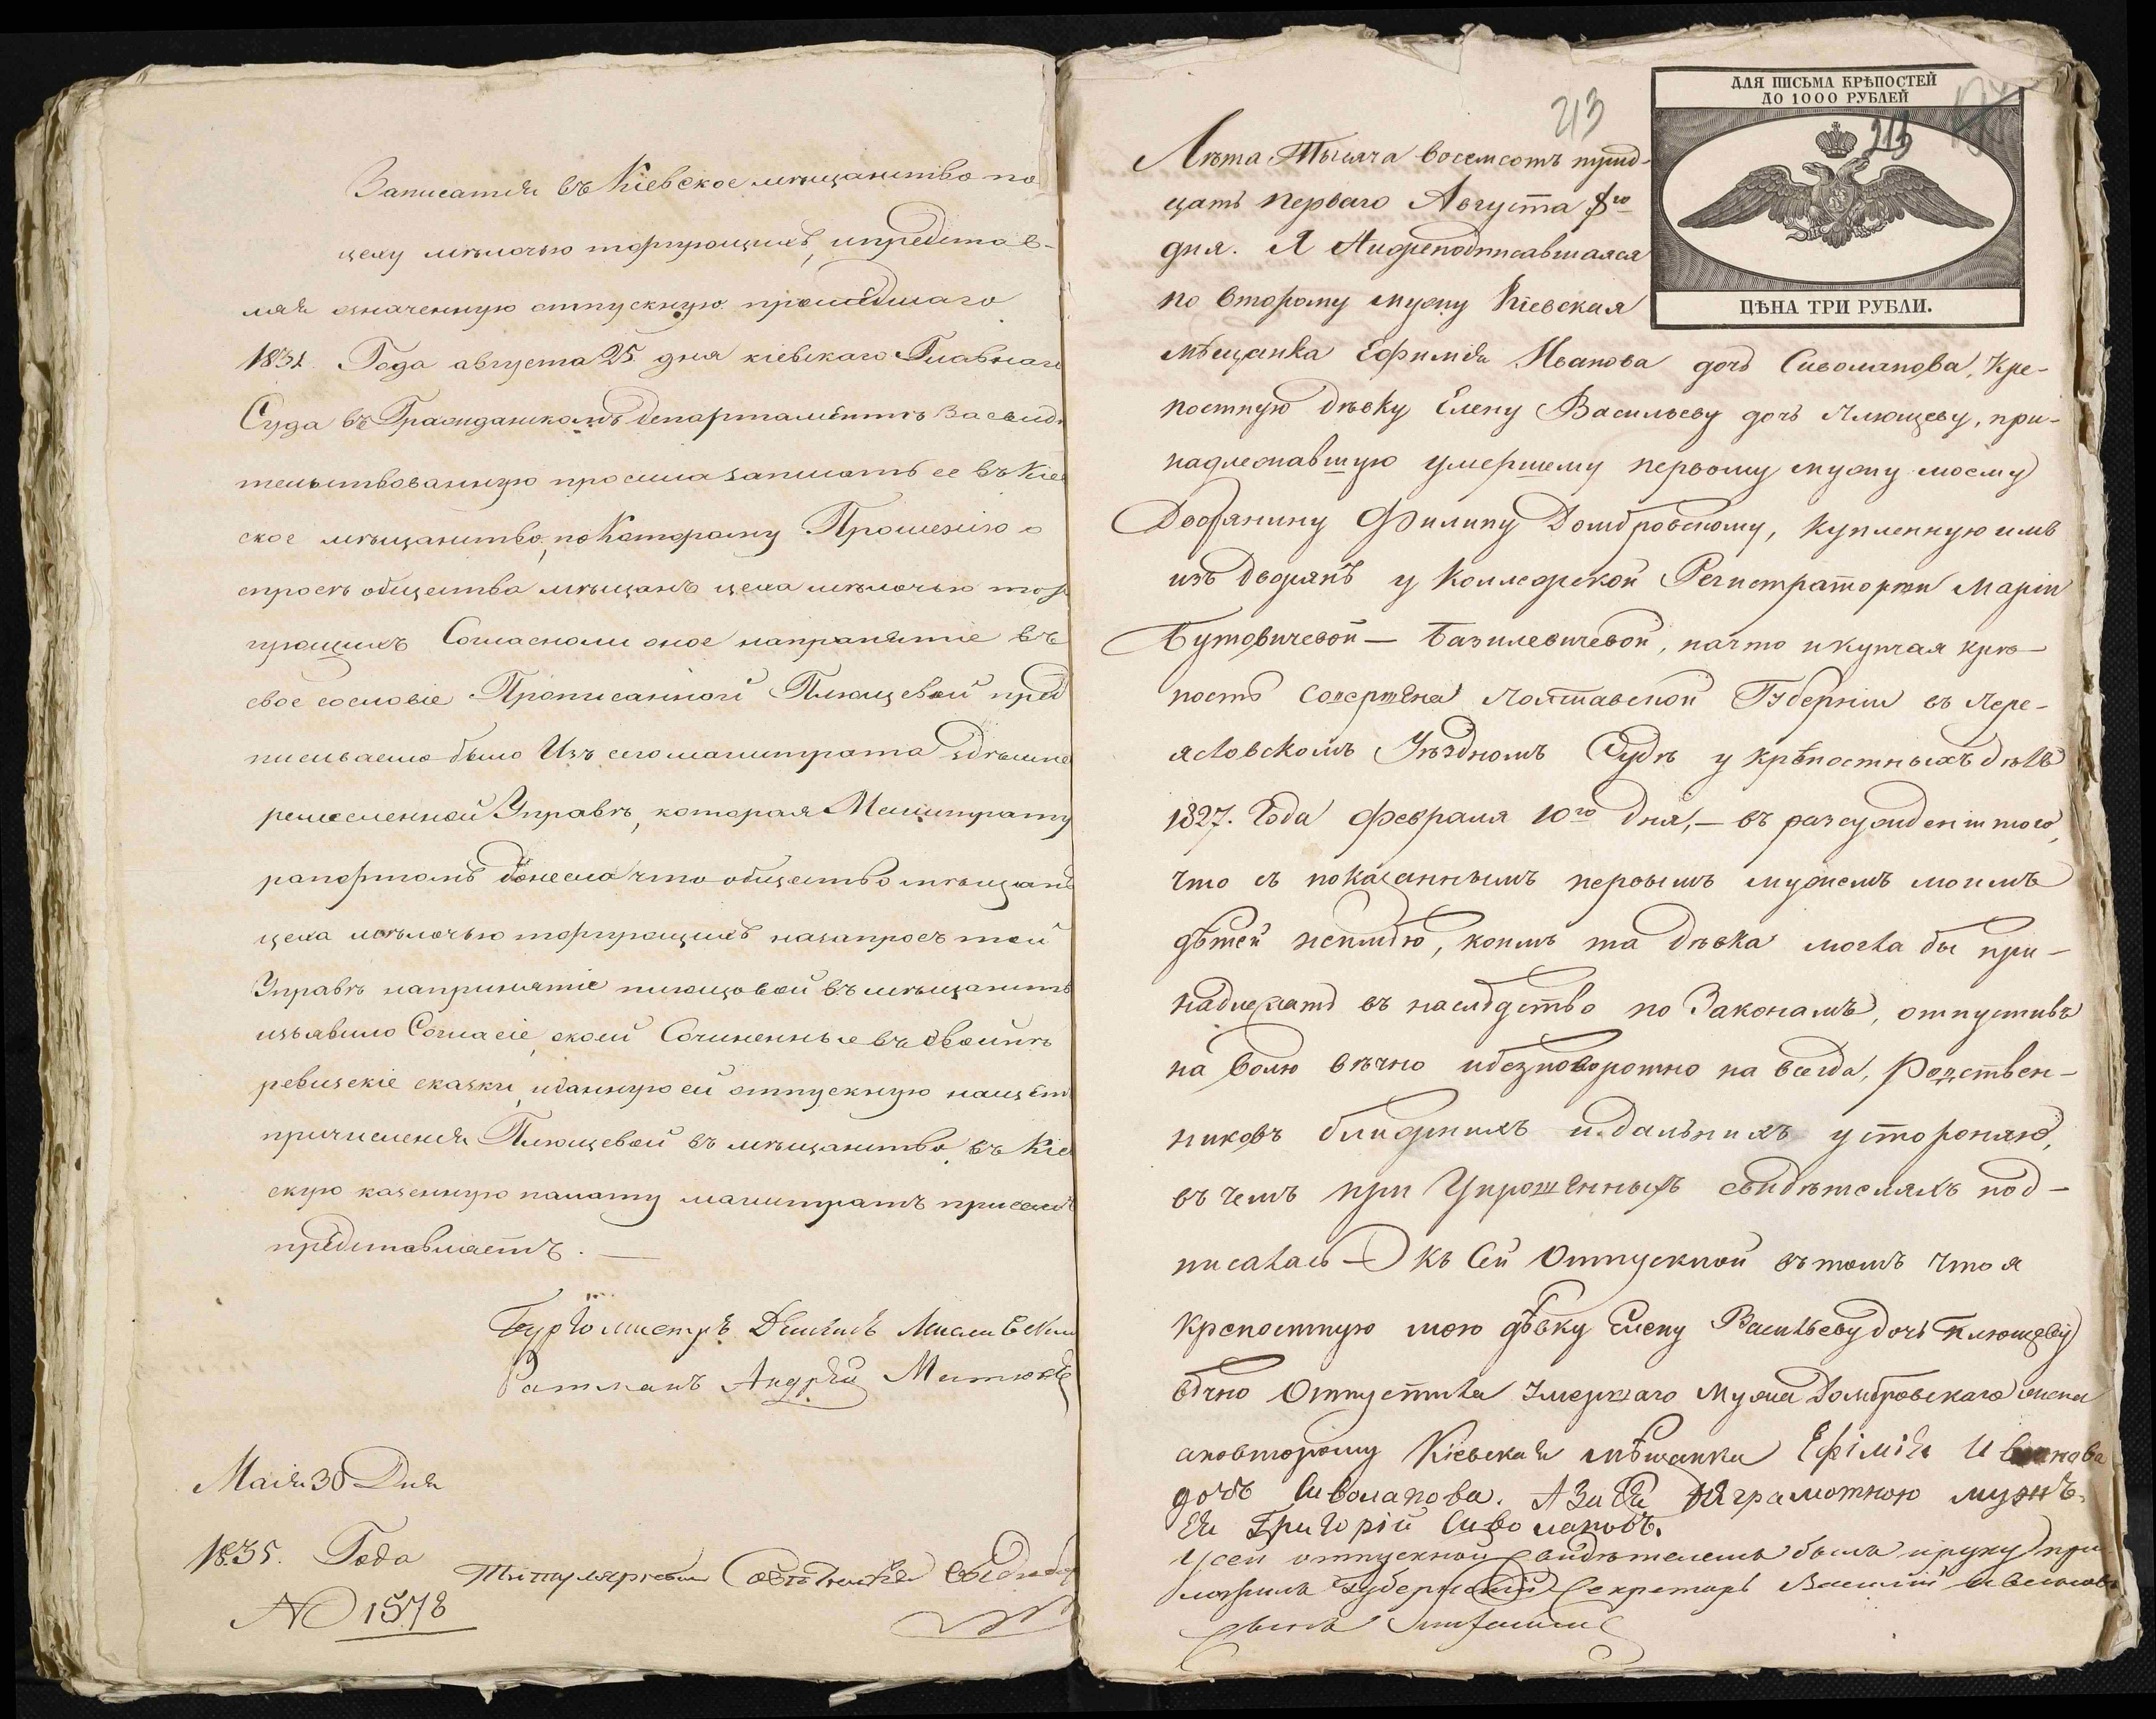 Записатся въ Кіевское мѣщанство по
цеху мѣлочью торгующихъ, ипредстав-
ляя означенную отпускную прошедшаго
1831. Года августа 25 дня кіевскаго Главнаго
Суда въ Гражданскомъ департаментѣ Засвидѣ
тельствованную просила записать ее въ Кіев
ское мѣщанство, по Которому Прошенію о
спросѣ общества мѣщанъ цеха мѣлочью тор
гующихъ Согласноли оное напринятіе въ
свое сословіе Прописанной Плющевой пред
писываемо было Изъ сего магистрата здѣшне
ремесленной Управѣ, которая Магистрату
рапортомъ донесла что общество мѣщанъ
цеха мѣлочью торгующихъ назапросъ той
Управѣ напринятіе плющовой въ мѣщанств
изъявило Согласіе, скоей Сочиненные въ двойнѣ
ревизскіе сказки, иданную ей отпускную нащет
причисленія Плющевой въ мѣщанство въ Кіе
скую казенную палату магистратъ присемъ
представляетъ. —
Бургомистръ
Ратманъ Андрей
Маія 30 Дня
1835. Года
Титулярный Совѣтникъ
№ 1578
213
ДЛЯ ПИСЬМА КРѢПОСТЕЙ
ДО 1000 РУБЛЕЙ
213
ЦѢНА ТРИ РУБЛИ.
Лѣта Тысяча восемсотъ трид-
цать перваго Августа 8го
дня. Я Нижеподписавшаяся
по второму мужу Кіевская
мѣщанка Ефимія Иванова дочь Сиволапова, Кре-
постную дѣвку Елену Васильеву дочь Плющеву, при-
надлежавшую умершему первому мужу моему
Дворянину Филипу Домбровскому, купленную имъ
изъ дворянъ у Коллежской Регистраторши Маріи
Бутовичевой — Базилевичевой, начто икупчая крѣ-
пость совершена Полтавской Губерніи въ Пере-
яславскомъ Уѣздномъ Судѣ у крѣпостныхъ дѣлъ
1827. Года февраля 10го дня, — въ разсужденіи того,
что съ показаннымъ первымъ мужемъ моимъ
дѣтей неимѣю, коимъ та дѣвка могла бы при-
надлежать въ наслѣдство по Законамъ, отпустивъ
на волю вѣчно ибезповоротно на всегда, Родствен-
никовъ ближнихъ и дальнихъ устороняю,
въ чемъ при Упрошенныхъ свидѣтеляхъ под-
писалась — Къ Сей Отпускной въ томъ что я
крепостную мою дѣвку Елену Васильеву дочь плющеву
вѣчно Отпустила Умершаго Мужа Домбровскаго жена
аповторому Кіевская мѣщанка Ефімія Иванова
дочь Сиволапова. А за неграмотною мужъ
Ея Григорій Сиволаповъ.
Усей отпускной свидѣтелемъ былъ ируку при
ложилъ Губернскій Секретарь Василій
сынъ